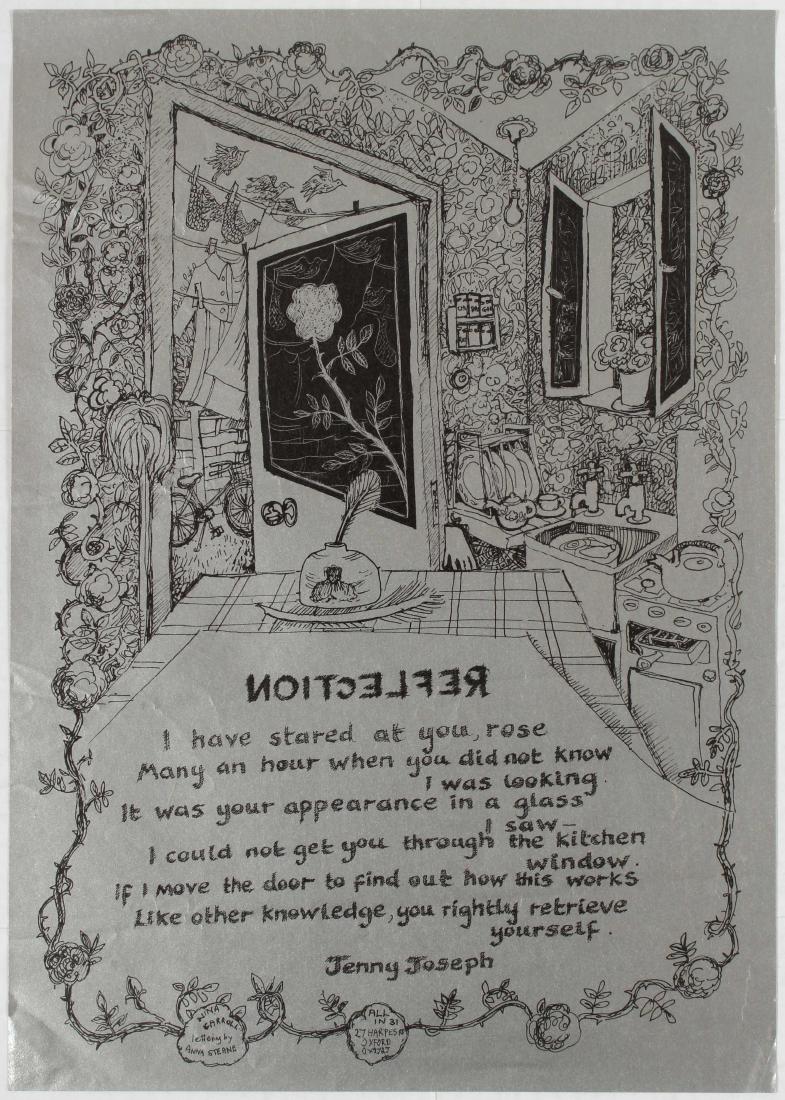 REFLECTION
I have stared at you, rose
Many an hour when you did not know
I was looking.
It was your appearance in a glass
I saw —
I could not get you through the kitchen
window.
If I move the door to find out how this works
Like other knowledge, you rightly retrieve
yourself.
Jenny Joseph
NINA
CARROLL
lettering by
ANNA STEANE
ALL
IN 31
27 HARPES
OXFORD